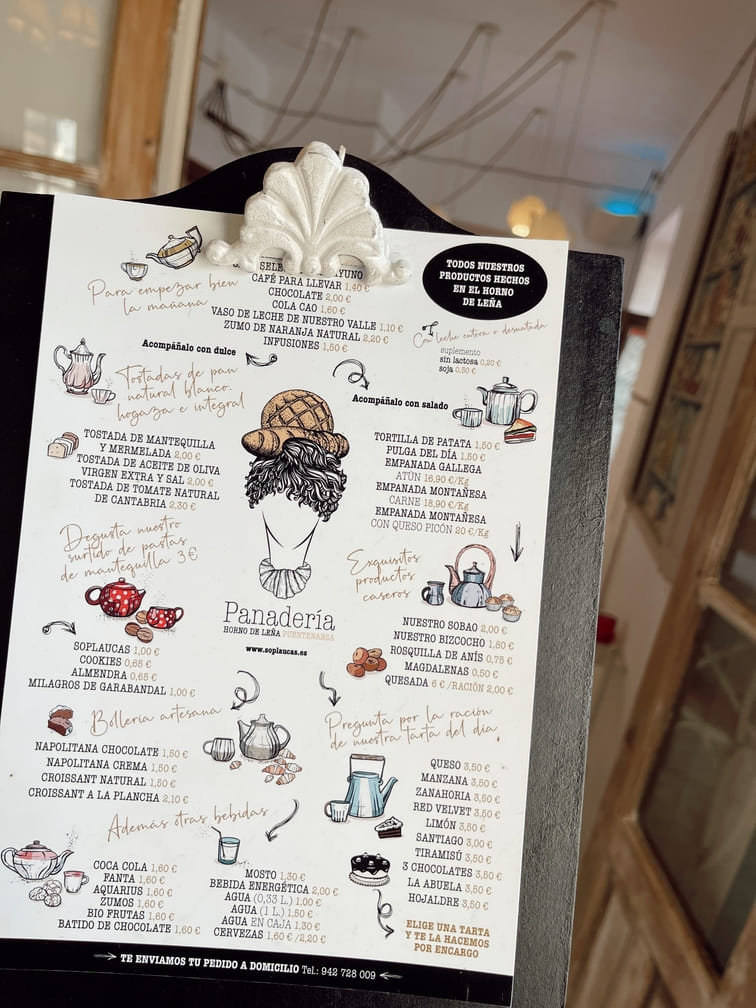 Para empezar bien
la mañana
CAFÉ PARA LLEVAR 1,40 €
CHOCOLATE 2,00 €
COLA CAO 1,60 €
VASO DE LECHE DE NUESTRO VALLE 1,10 €
ZUMO DE NARANJA NATURAL 2,20 €
INFUSIONES 1,50 €
TODOS NUESTROS
PRODUCTOS HECHOS
EN EL HORNO
DE LEÑA
Con leche entera o desnatada
suplemento
sin lactosa 0,20 €
soja 0,30 €
Acompáñalo con dulce
Tostadas de pan
natural blanco,
hogaza e integral
TOSTADA DE MANTEQUILLA
Y MERMELADA 2,00 €
TOSTADA DE ACEITE DE OLIVA
VIRGEN EXTRA Y SAL 2,00 €
TOSTADA DE TOMATE NATURAL
DE CANTABRIA 2,30 €
Acompáñalo con salado
TORTILLA DE PATATA 1,50 €
PULGA DEL DÍA 1,50 €
EMPANADA GALLEGA
ATÚN 16,90 €/Kg
EMPANADA MONTAÑESA
CARNE 18,90 €/Kg
EMPANADA MONTAÑESA
CON QUESO PICÓN 20 €/Kg
Degusta nuestro
surtido de pastas
de mantequilla 3 €
SOPLAUCAS 1,00 €
COOKIES 0,65 €
ALMENDRA 0,65 €
MILAGROS DE GARABANDAL 1,00 €
Panadería
HORNO DE LEÑA PUENTENANSA
www.soplaucas.es
Exquisitos
productos
caseros
NUESTRO SOBAO 2,00 €
NUESTRO BIZCOCHO 1,80 €
ROSQUILLA DE ANÍS 0,75 €
MAGDALENAS 0,50 €
QUESADA 6 €/RACIÓN 2,00 €
Bolleria artesana
NAPOLITANA CHOCOLATE 1,50 €
NAPOLITANA CREMA 1,50 €
CROISSANT NATURAL 1,50 €
CROISSANT A LA PLANCHA 2,10 €
Pregunta por la ración
de nuestra tarta del día.
QUESO 3,50 €
MANZANA 3,50 €
ZANAHORIA 3,50 €
RED VELVET 3,50 €
LIMÓN 3,50 €
SANTIAGO 3,00 €
TIRAMISÚ 3,50 €
3 CHOCOLATES 3,50 €
LA ABUELA 3,50 €
HOJALDRE 3,50 €
Además otras bebidas
COCA COLA 1,60 €
FANTA 1,60 €
AQUARIUS 1,60 €
ZUMOS 1,60 €
BIO FRUTAS 1,60 €
BATIDO DE CHOCOLATE 1,60 €
MOSTO 1,30 €
BEBIDA ENERGÉTICA 2,00 €
AGUA (0,33 L.) 1,00 €
AGUA (1 L.) 1,50 €
AGUA EN CAJA 1,30 €
CERVEZAS 1,60 € /2,20 €
ELIGE UNA TARTA
Y TE LA HACEMOS
POR ENCARGO
TE ENVIAMOS TU PEDIDO A DOMICILIO Tel.: 942 728 009